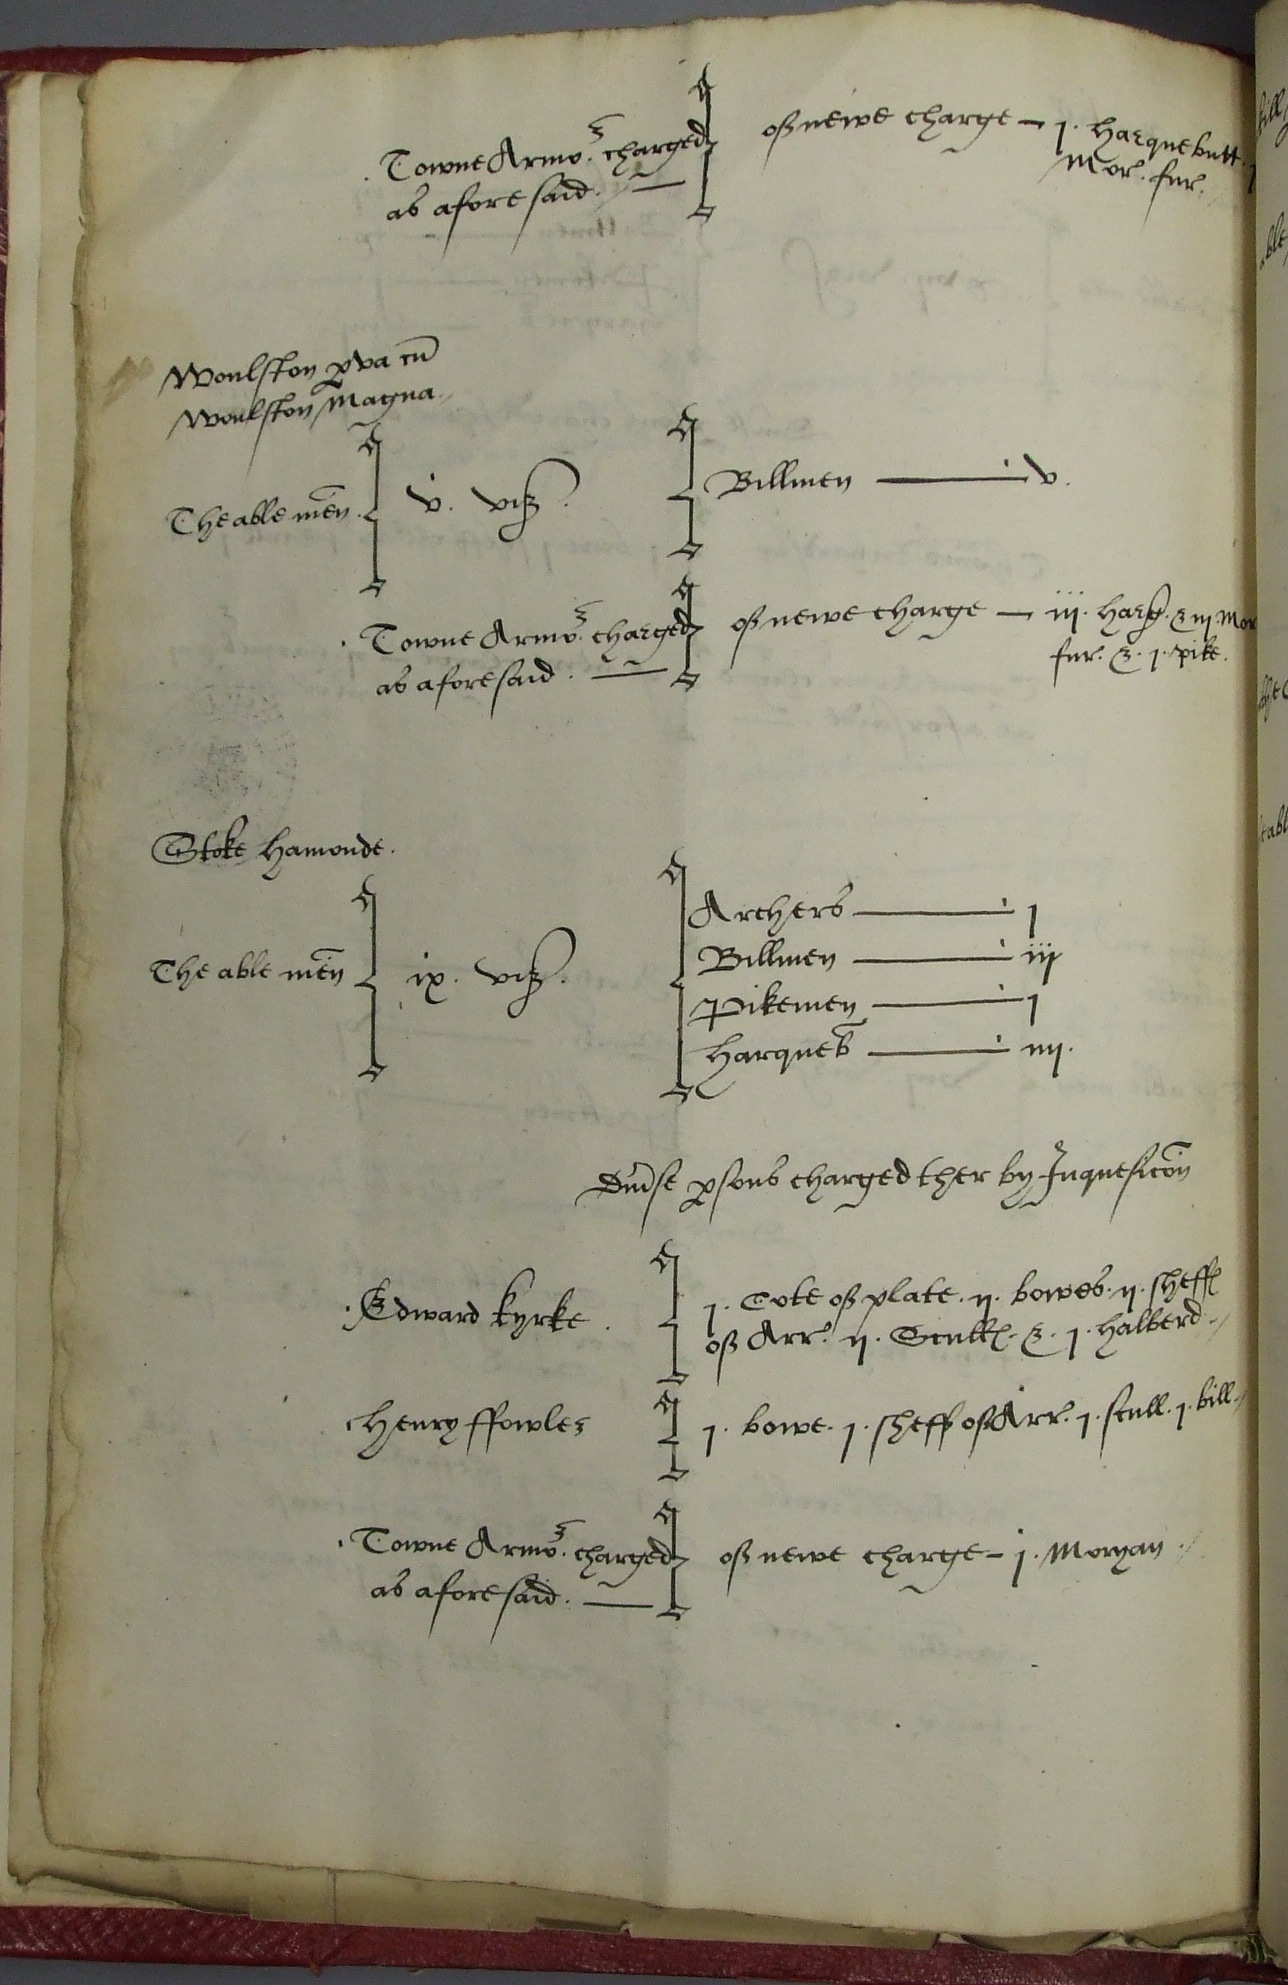 Towne Armor. charged of newe charge — j. Harquebutt. j
as afore said. — Mor. fur.
Woulston pva cu
Woulston Magna.
The able men. v. viz. Billmen — v.
Towne Armor. charged of newe charge — iij. harq. & iij Mor
as aforesaid. — fur. & j. pike.
Stoke hamonde.
Archers — j
Billmen — iij
The able men ix. viz. Pikemen — j
Harqueb — iiij.
Divse psons charged ther by Inquesicon
Edward kyrke. j. Cote of plate. ij. bowes. ij. sheff
of Arr. ij. Scull. & j. halberd
Henry ffowler j. bowe. j. sheff of Arr. j. scull. j. bill.
Towne Armor. charged of newe charge — j. Moryan.
as aforesaid. —